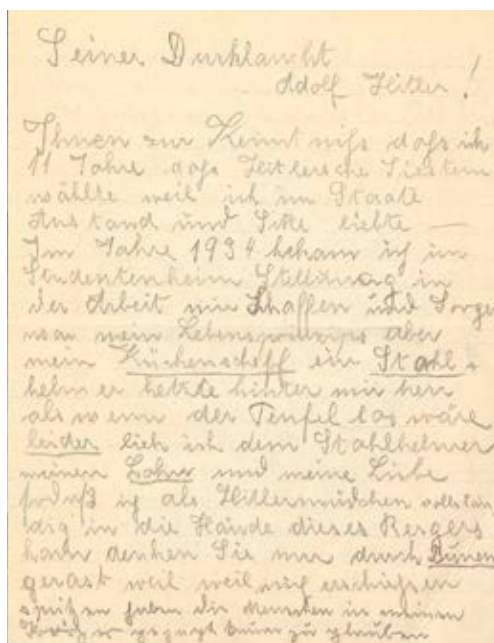 Seiner Durklaucht
Adolf Hitler!
Ihnen zur Kenntniss dass ich
11 Jahre dass Hitlersche Siestem
wählte weil ich im Staate
Anstand und Sitte liebte —
Im Jahre 1934 bekam ich im
Studentenheim Stellung in
der Arbeit wie schaffen und Sorgen
war mein Lebensprinzips aber
mein Küchenscheff ein Stahl-
helmer hetzte hinter mir herr
als wenn der Teufel los wäre
leider lieh ich dem Stahlhelmer
meinen Lohn und meine Liebe
sodaß ich als Hitlermädchen vollstän
dig in die Hände dieses
kam denken Sie nur durch
gerast weil weil mich erschießen
die Menschen in meinem
gesagt kaum zu glauben